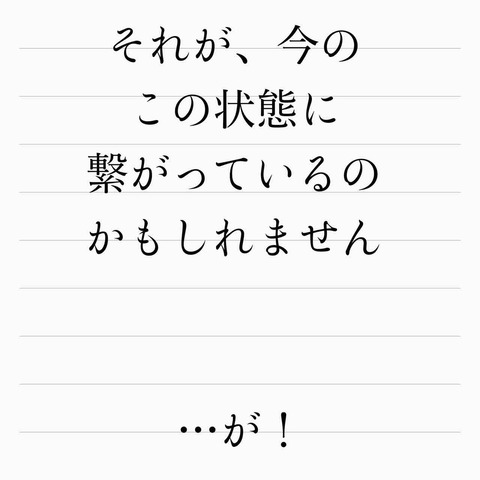 それが、今の
この状態に
繋がっているの
かもしれません
…が！